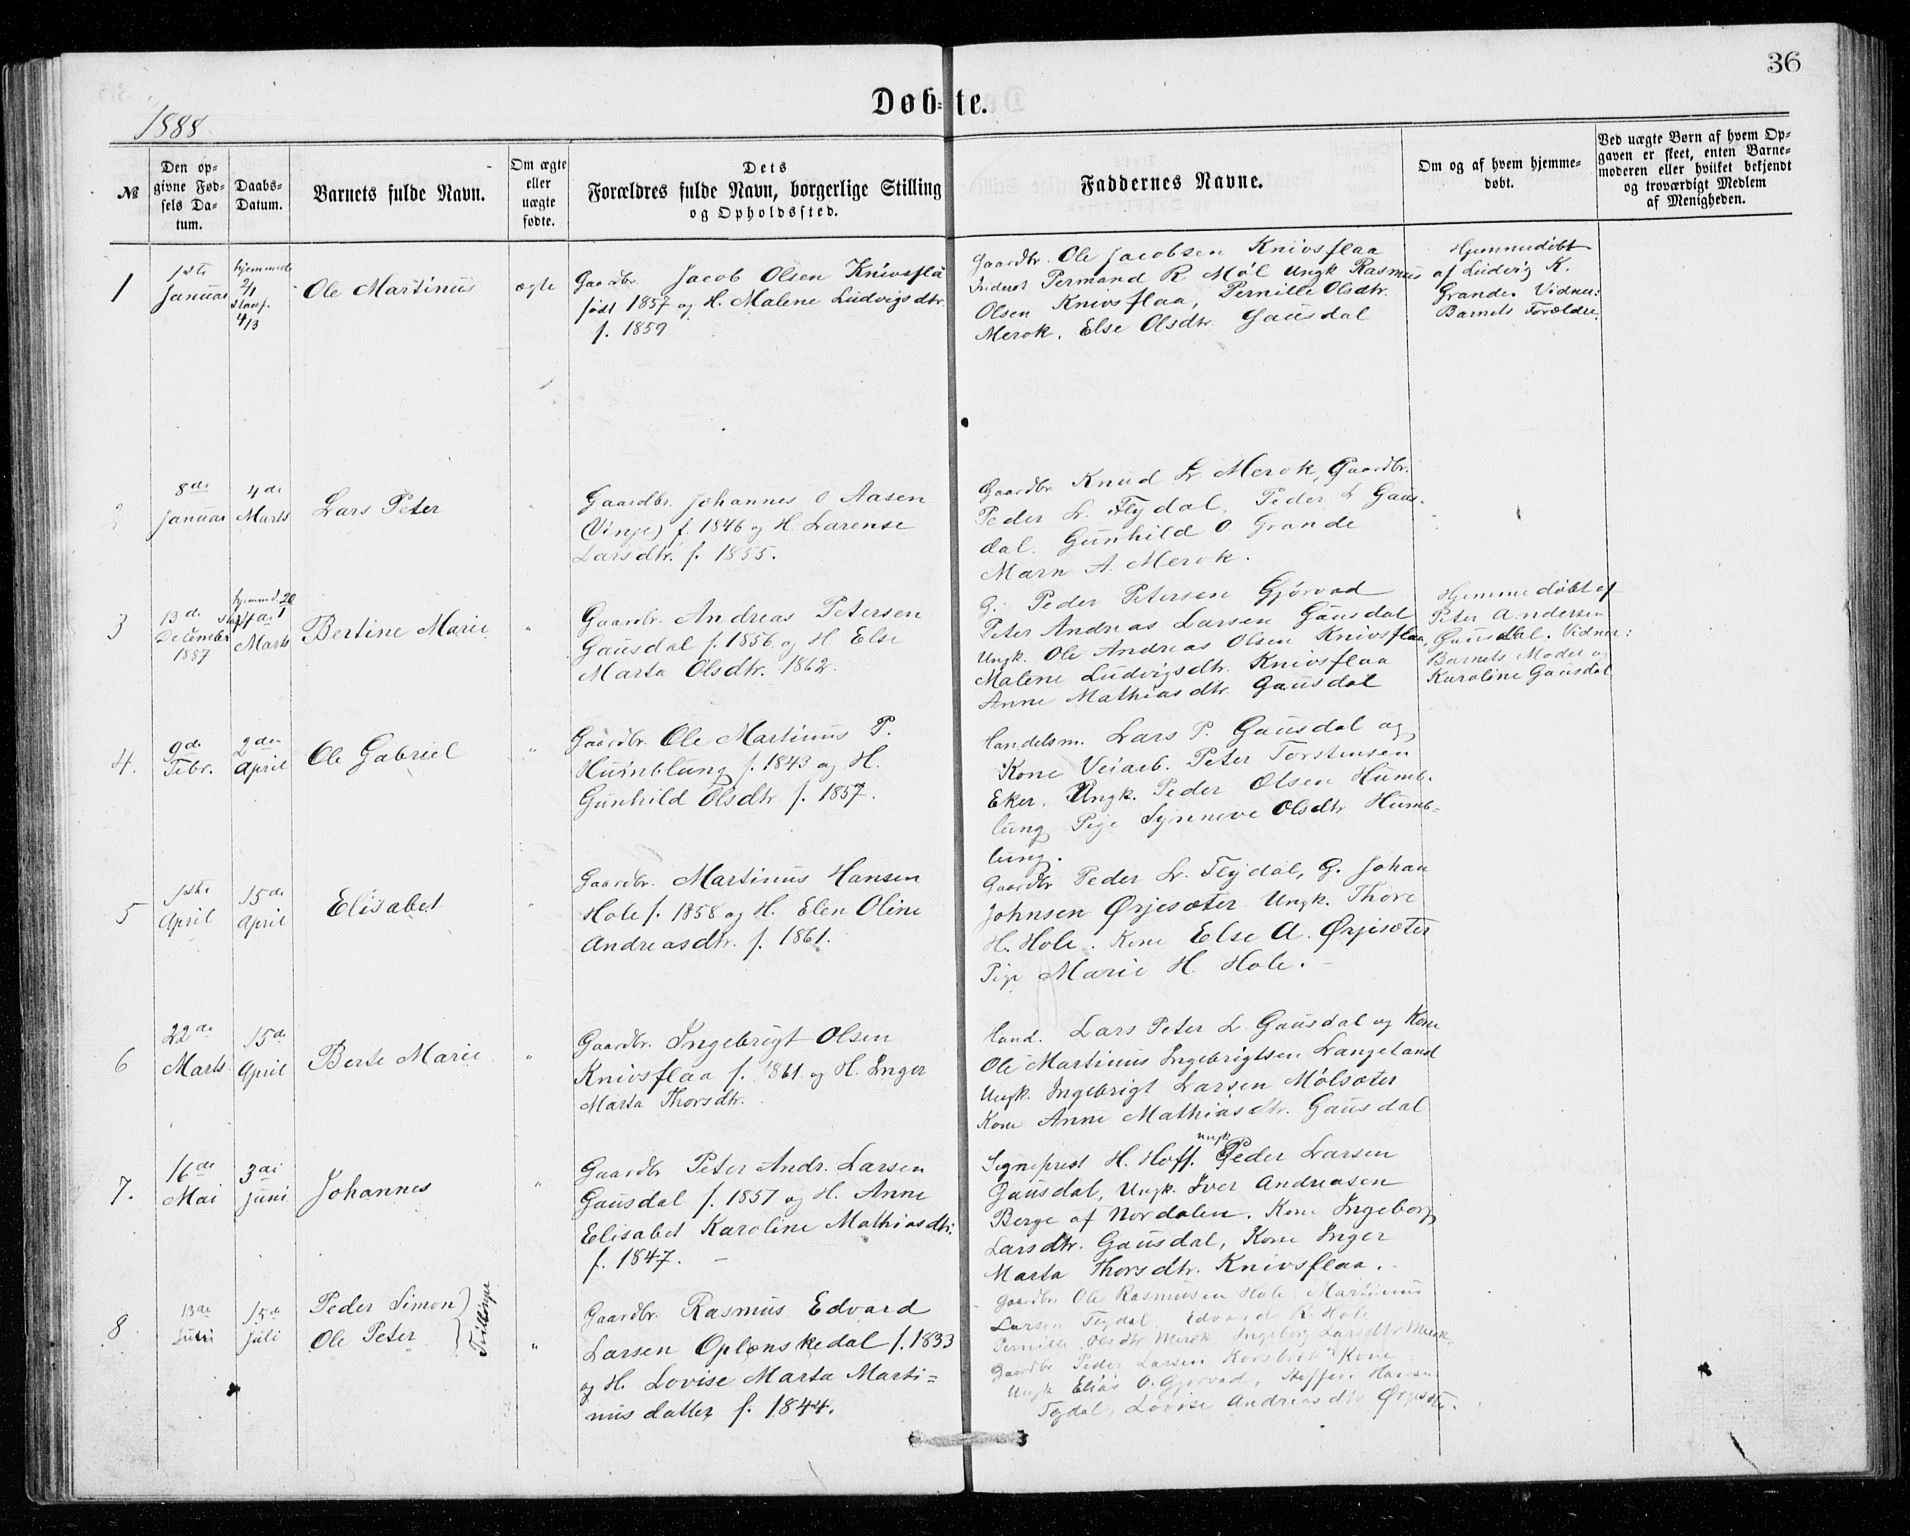 36
Døb-te.
1888
№
Den op-
givne Fød-
sels Da-
tum.
Daabs-
Datum.
Barnets fulde Navn.
Om ægte
eller
uægte
fødte.
Dets
Forældres fulde Navn, borgerlige Stilling
og Opholdssted.
Faddernes Navne.
Om og af hvem hjemme-
døbt.
Ved uægte Børn af hvem Op-
gaven er skeet, enten Barne-
moderen eller hvilket bekjendt
og troværdigt Medlem
af Menigheden.
1
1ste
Januar
hjemmedb
2/1
Stadf.
4/3
Ole Martinus
ægte
Gaardbr. Jacob Olsen Knivsflå
født 1857 og H. Malene Ludvigsdtr.
f. 1859
Gaardbr. Ole Jacobsen Knivsflaa
Inderst Permand R. Möl Ungk Rasmus
Olsen Knivsflaa, Pernille Olsdtr.
Merok. Else Olsdtr. Gausdal
Hjemmedøbt
af Ludvig K.
Grande. Vidner:
Barnets Forældre.
2
8de
Januar
4de
Marts
Lars Peter
"
Gaardbr. Johannes O Aasen
(Vinje) f. 1846 og H. Larense
Larsdtr. f. 1855.
Gaardbr Knud L. Merok, Gaardbr.
Peder L. Flydal. Peder L Gaus-
dal. Gunhild O. Grande
Marn A. Merok.
3
13de
December
1887
hjemmd. 20
Marts
Bertine Marie
"
Gaardbr. Andreas Petersen
Gausdal f. 1856 og H Else
Marta Olsdtr. 1862.
G. Peder Petersen Gjørvad
Peter Andreas Larsen Gausdal
Ungk. Ole Andreas Olsen Knivsflaa,
Malene Ludvigsdtr. Knivsflaa
Anne Mathiasdtr Gausdal
Hjemmedøbt af
Peter Andersen
Gausdal. Vidner:
Barnets Moder og
Karoline Gausdal
4.
9de
Febr.
2den
April
Ole Gabriel
"
Gaardbr. Ole Martinus P.
Humblung f. 1843 og H.
Gunhild Olsdtr f. 1857.
Handelsm. Lars P. Gausdal og
Kone Veiarb. Peter Torstensen
Eker. Ungk. Peder Olsen Humb-
lung Pige Synneve Olsdtr Humb-
lung.
5
1ste
April
15de
April
Elisabet
"
Gaardbr. Martinus Hansen
Hole f. 1858 og H. Elen Oline
Andreasdtr. f. 1861.
Gaardbr Peder L. Flydal, G. Johan
Johnsen Ørjesæter Ungk. Thore
H. Hole. Kone Else A. Ørjesæter
Pige Marie H. Hole.
6
22de
Marts
15de
April
Berte Marie
"
Gaardbr. Ingebrigt Olsen
Knivsflaa f. 1861 og H. Inger
Marta Thorsdtr.
Hand. Lars Peter L. Gausdal og Kone
Ole Martinus Ingebrigtsen Langeland
Ungk. Ingebrigt Larsen Mølsæter
Kone Anne Mathiasdtr. Gausdal
7.
16de
Mai
3die
Juni
Johannes
"
Gaardbr Peter Andr. Larsen
Gausdal f. 1857 og H. Anne
Elisabet Karoline Mathiasdtr.
f. 1847.
Sogneprest H. Hoff. Ungk Peder Larsen
Gausdal, Ungk. Iver Andreasen
Berge af Nordalen. Kone Ingeborg
Larsdtr. Gausdal, Kone Inger
Marta Thorsdtr. Knivsflaa.
8
13de
Juni
15de
Juli
Peder Simon
Ole Peter
Tillinger
"
Gaardbr Rasmus Edvard
Larsen Oplænskedal f. 1833
og H. Lovise Marta Marti=
nusdatter f. 1844.
Gaardbr Ole Rasmussen Hole, Martinus
Larsen Flydal Edvard R. Hole
Pernille Olsdtr Merok Ingeborg Larsdtr Merok
Gaardbr Peder Larsen Korsbrek Kone
Ungk Elias O. Gjørvad, Steffen Hansen
Flydal, Lovise Andreasdtr Ørjesæter.